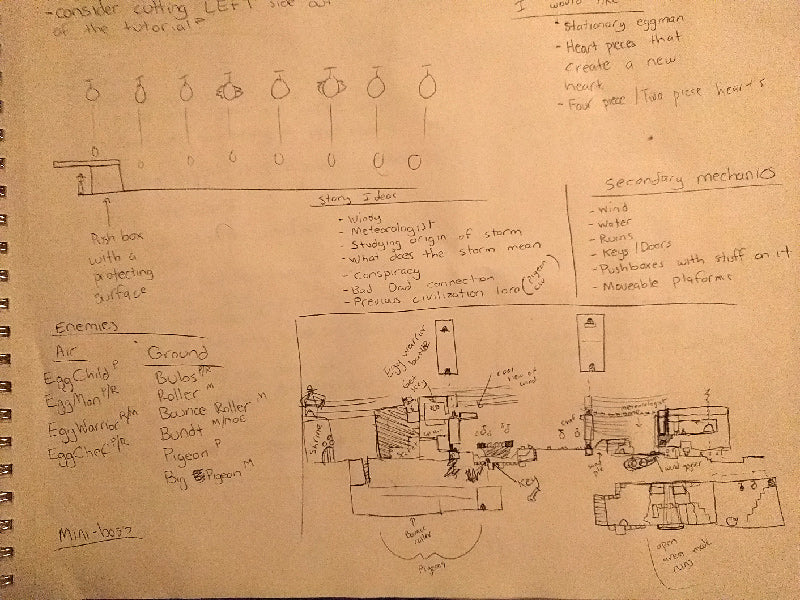 -consider cutting LEFT side out
of the tutorial?
I would like
* Stationary eggman
- Heart pieces that
create a new
heart
- Four piece / Two piece heart's
Push box
with a
protecting
surface
Story Ideas
- Windy
- Meteorologist
- Studying origin of storm
- What does the storm mean
- Conspiracy
- Bad Dad connection
- Previous civilization lore (pigeon
civ)
Secondary mechanics
- Wind
- Water
- Ruins
- Keys/Doors
- Pushboxes with stuff on it
- Moveable plaforms
Enemies
Air
EggChild P
EggMan P/R
EggWarrior R/M
EggChef P/R
Ground
Bulbs P/R
Roller M
Bounce Roller M
Bundt M/
Pigeon P
Big Pigeon M
Mini-boss
Egg warrior
Key
Shrine
Key
P
Pigeons
open
area
ruins